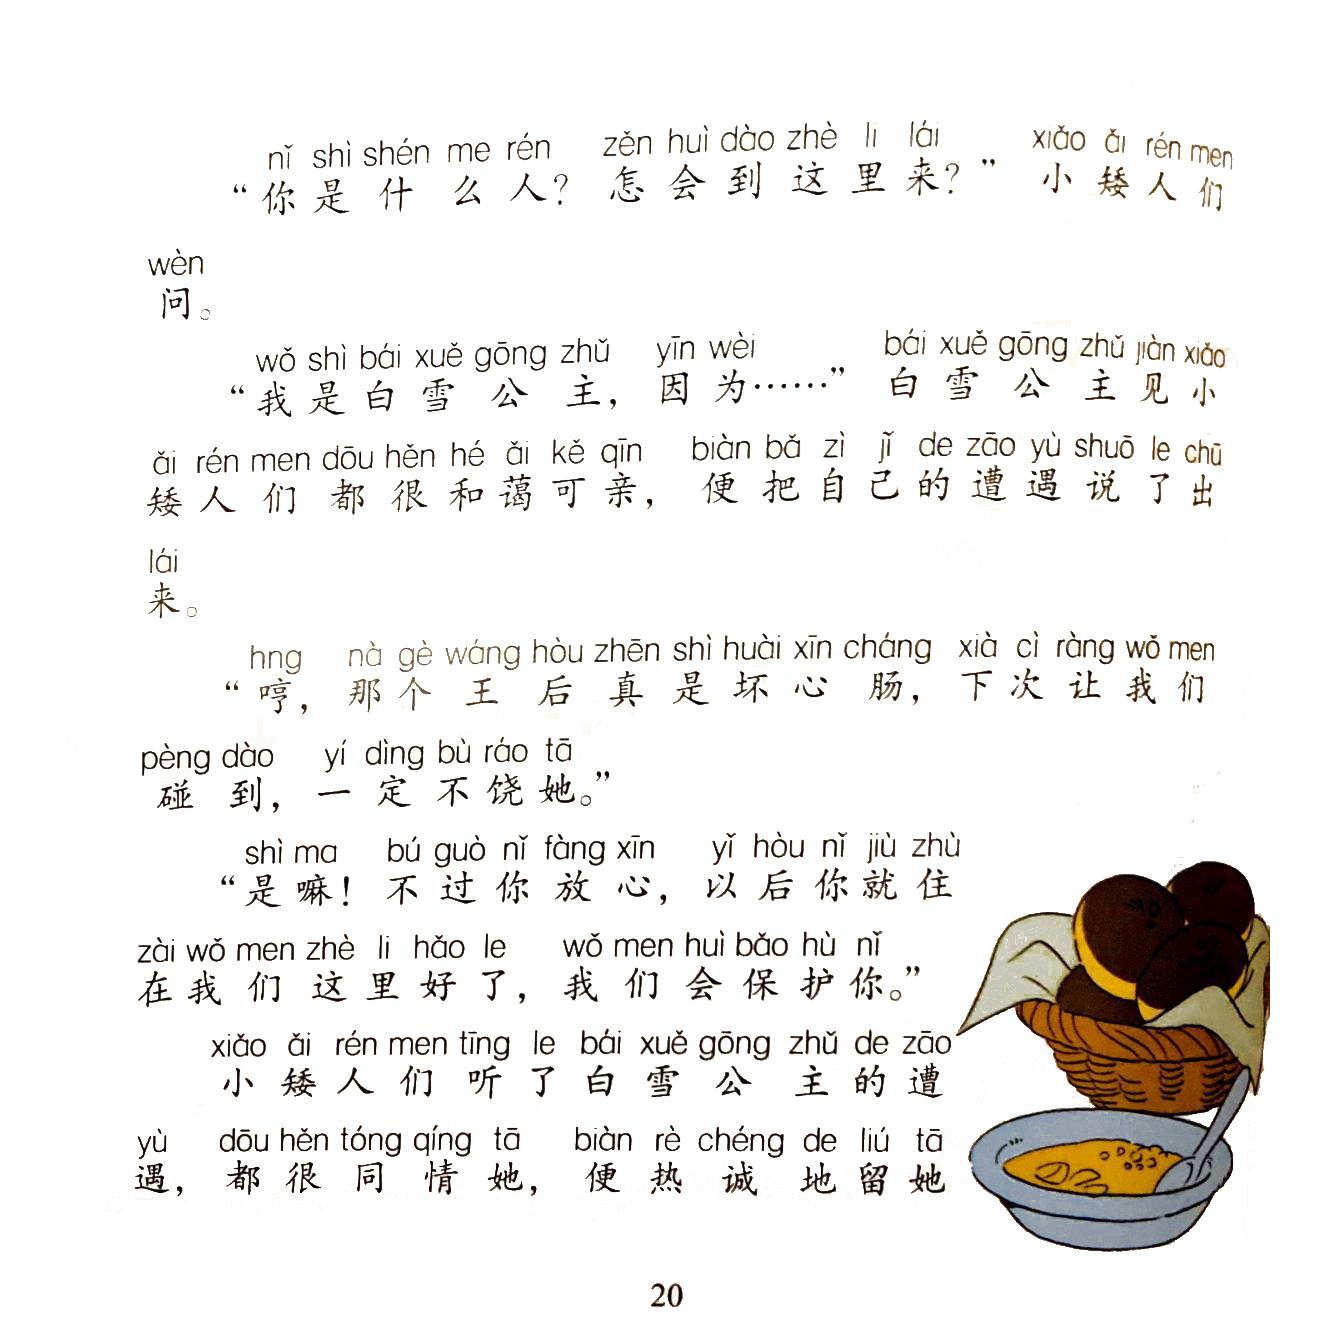 nǐ shì shén me rén zěn huì dào zhè li lái xiǎo ǎi rén men
“你是什么人？怎会到这里来？”小矮人们
wèn
问。
wǒ shì bái xuě gōng zhǔ yīn wèi bái xuě gōng zhǔ jiàn xiǎo
“我是白雪公主，因为……”白雪公主见小
ǎi rén men dōu hěn hé ǎi kě qīn biàn bǎ zì jǐ de zāo yù shuō le chū
矮人们都很和蔼可亲，便把自己的遭遇说了出
lái
来。
hng nà gè wáng hòu zhēn shì huài xīn cháng xià cì ràng wǒ men
“哼，那个王后真是坏心肠，下次让我们
pèng dào yí dìng bù ráo tā
碰到，一定不饶她。”
shì ma bú guò nǐ fàng xīn yǐ hòu nǐ jiù zhù
“是嘛！不过你放心，以后你就住
zài wǒ men zhè li hǎo le wǒ men huì bǎo hù nǐ
在我们这里好了，我们会保护你。”
xiǎo ǎi rén men tīng le bái xuě gōng zhǔ de zāo
小矮人们听了白雪公主的遭
yù dōu hěn tóng qíng tā biàn rè chéng de liú tā
遇，都很同情她，便热诚地留她
20